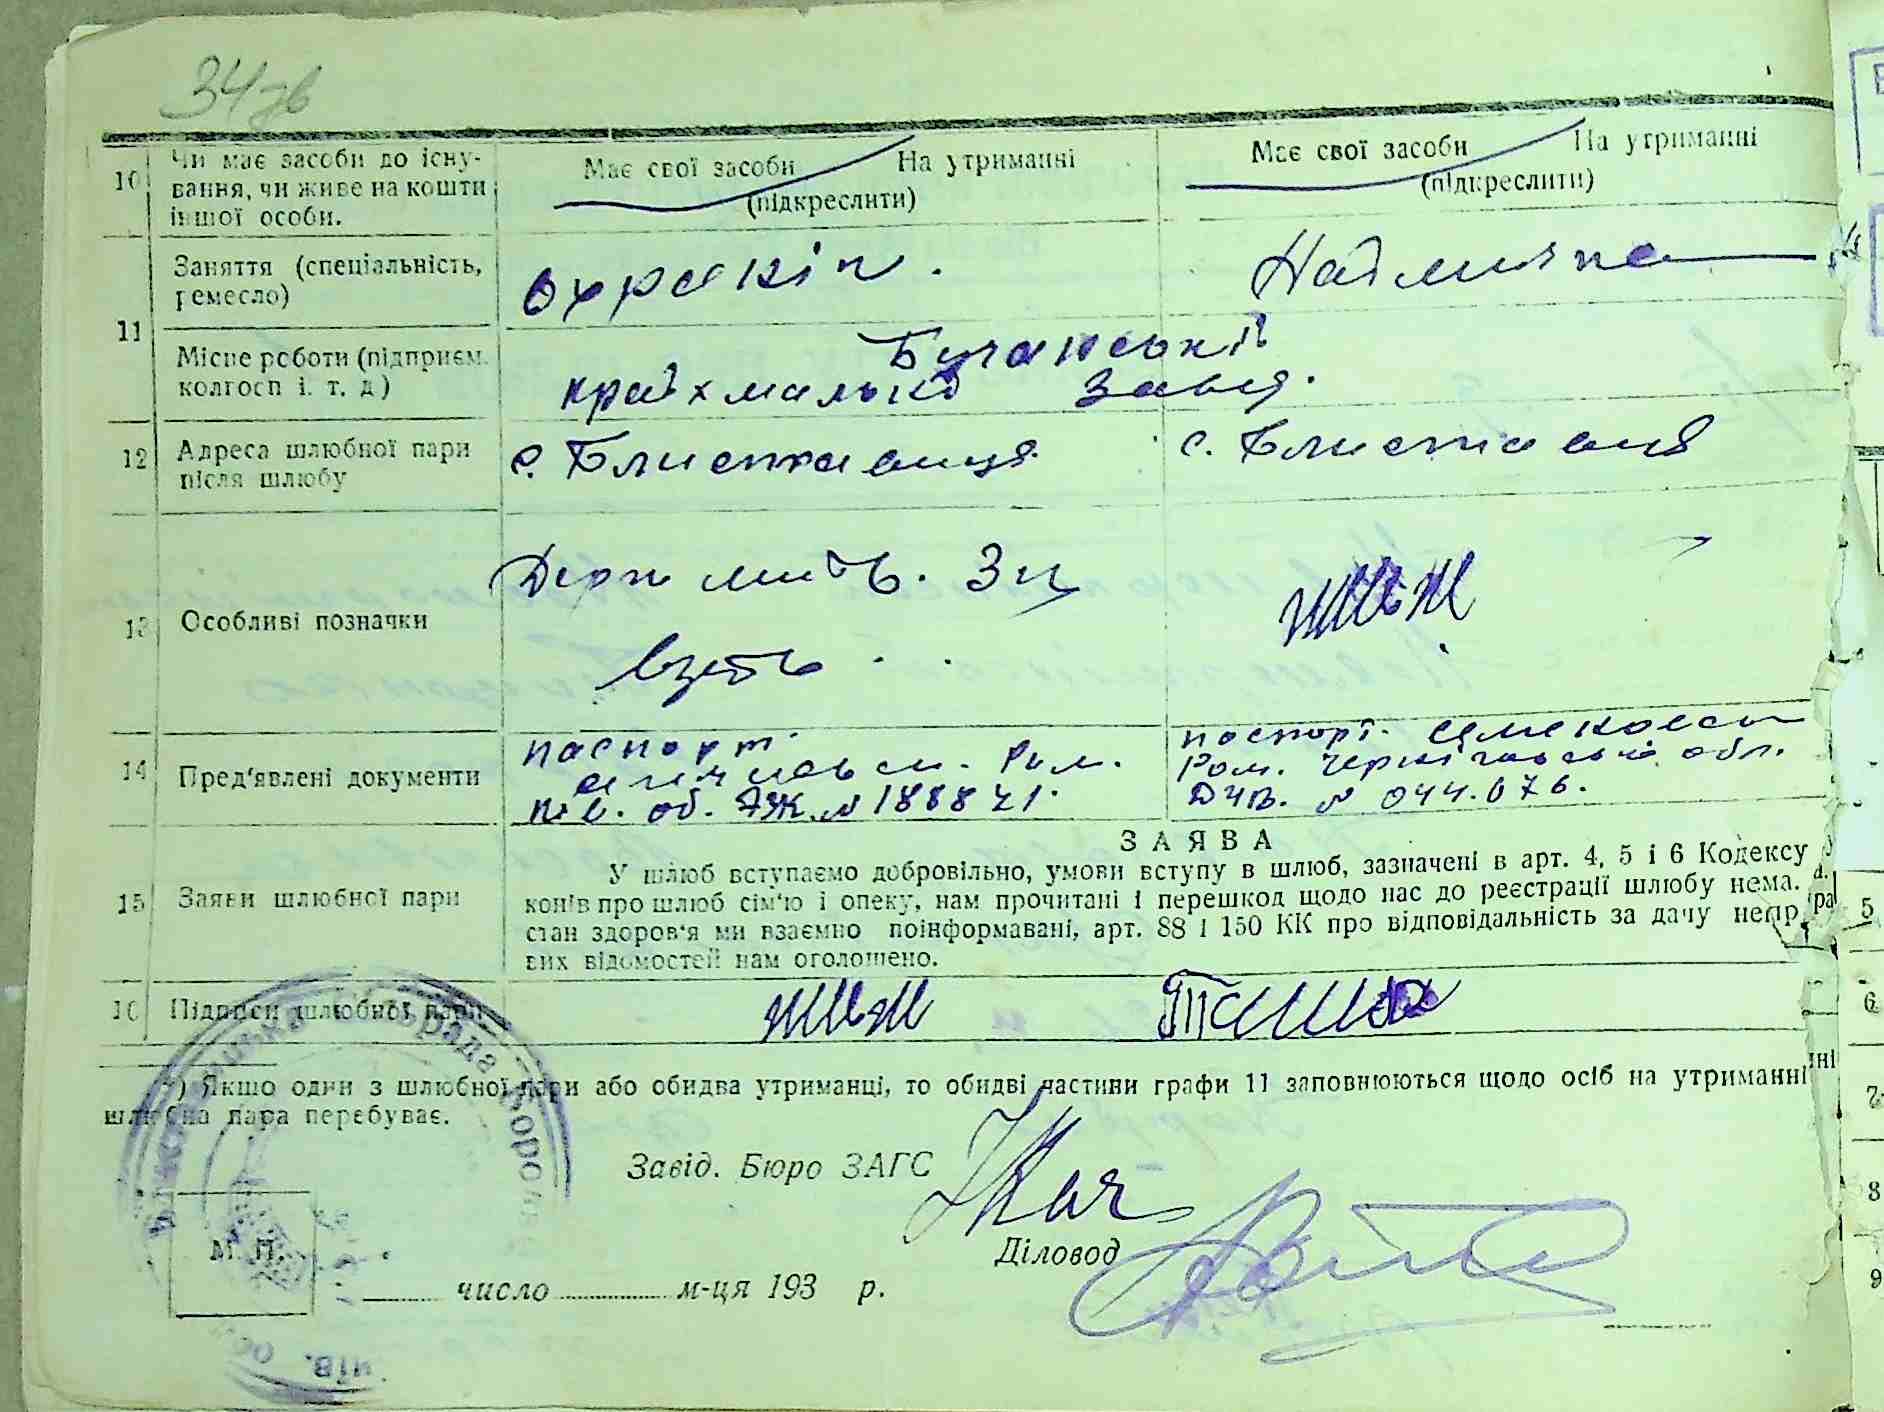 34зв
10 Чи має засоби до існу-
вання, чи живе на кошти
іншої особи.
Має свої засоби На утриманні
(підкреслити)
Має свої засоби На утриманні
(підкреслити)
11 Заняття (спеціальність,
ремесло)
Охра
Наймичка
Місце роботи (підприєм.
колгосп і. т. д)
Бучанський
крайхмальний завод.
12 Адреса шлюбної пари
після шлюбу
с. Блиставиця
с. Блиставиця
13 Особливі позначки
Держ мито. 3 ц
14 Пред'явлені документи
паспорт.
об. № 188821.
паспорт.
Чернігівської обл.
№ 044.076.
15 Заяви шлюбної пари
ЗАЯВА
У шлюб вступаємо добровільно, умови вступу в шлюб, зазначені в арт. 4, 5 і 6 Кодексу
конів про шлюб сім'ю і опеку, нам прочитані і перешкод щодо нас до реєстрації шлюбу нема.
стан здоров'я ми взаємно поінформавані, арт. 88 і 150 КК про відповідальність за дачу непр
вих відомостей нам оголошено.
16 Підписи шлюбної пари
*) Якщо один з шлюбної пари або обидва утриманці, то обидві частини графи 11 заповнюються щодо осіб на утриманні
шлюбна пара перебуває.
Завід. Бюро ЗАГС
Діловод
М. П.
число м-ця 193 р.
5
6
7
8
9